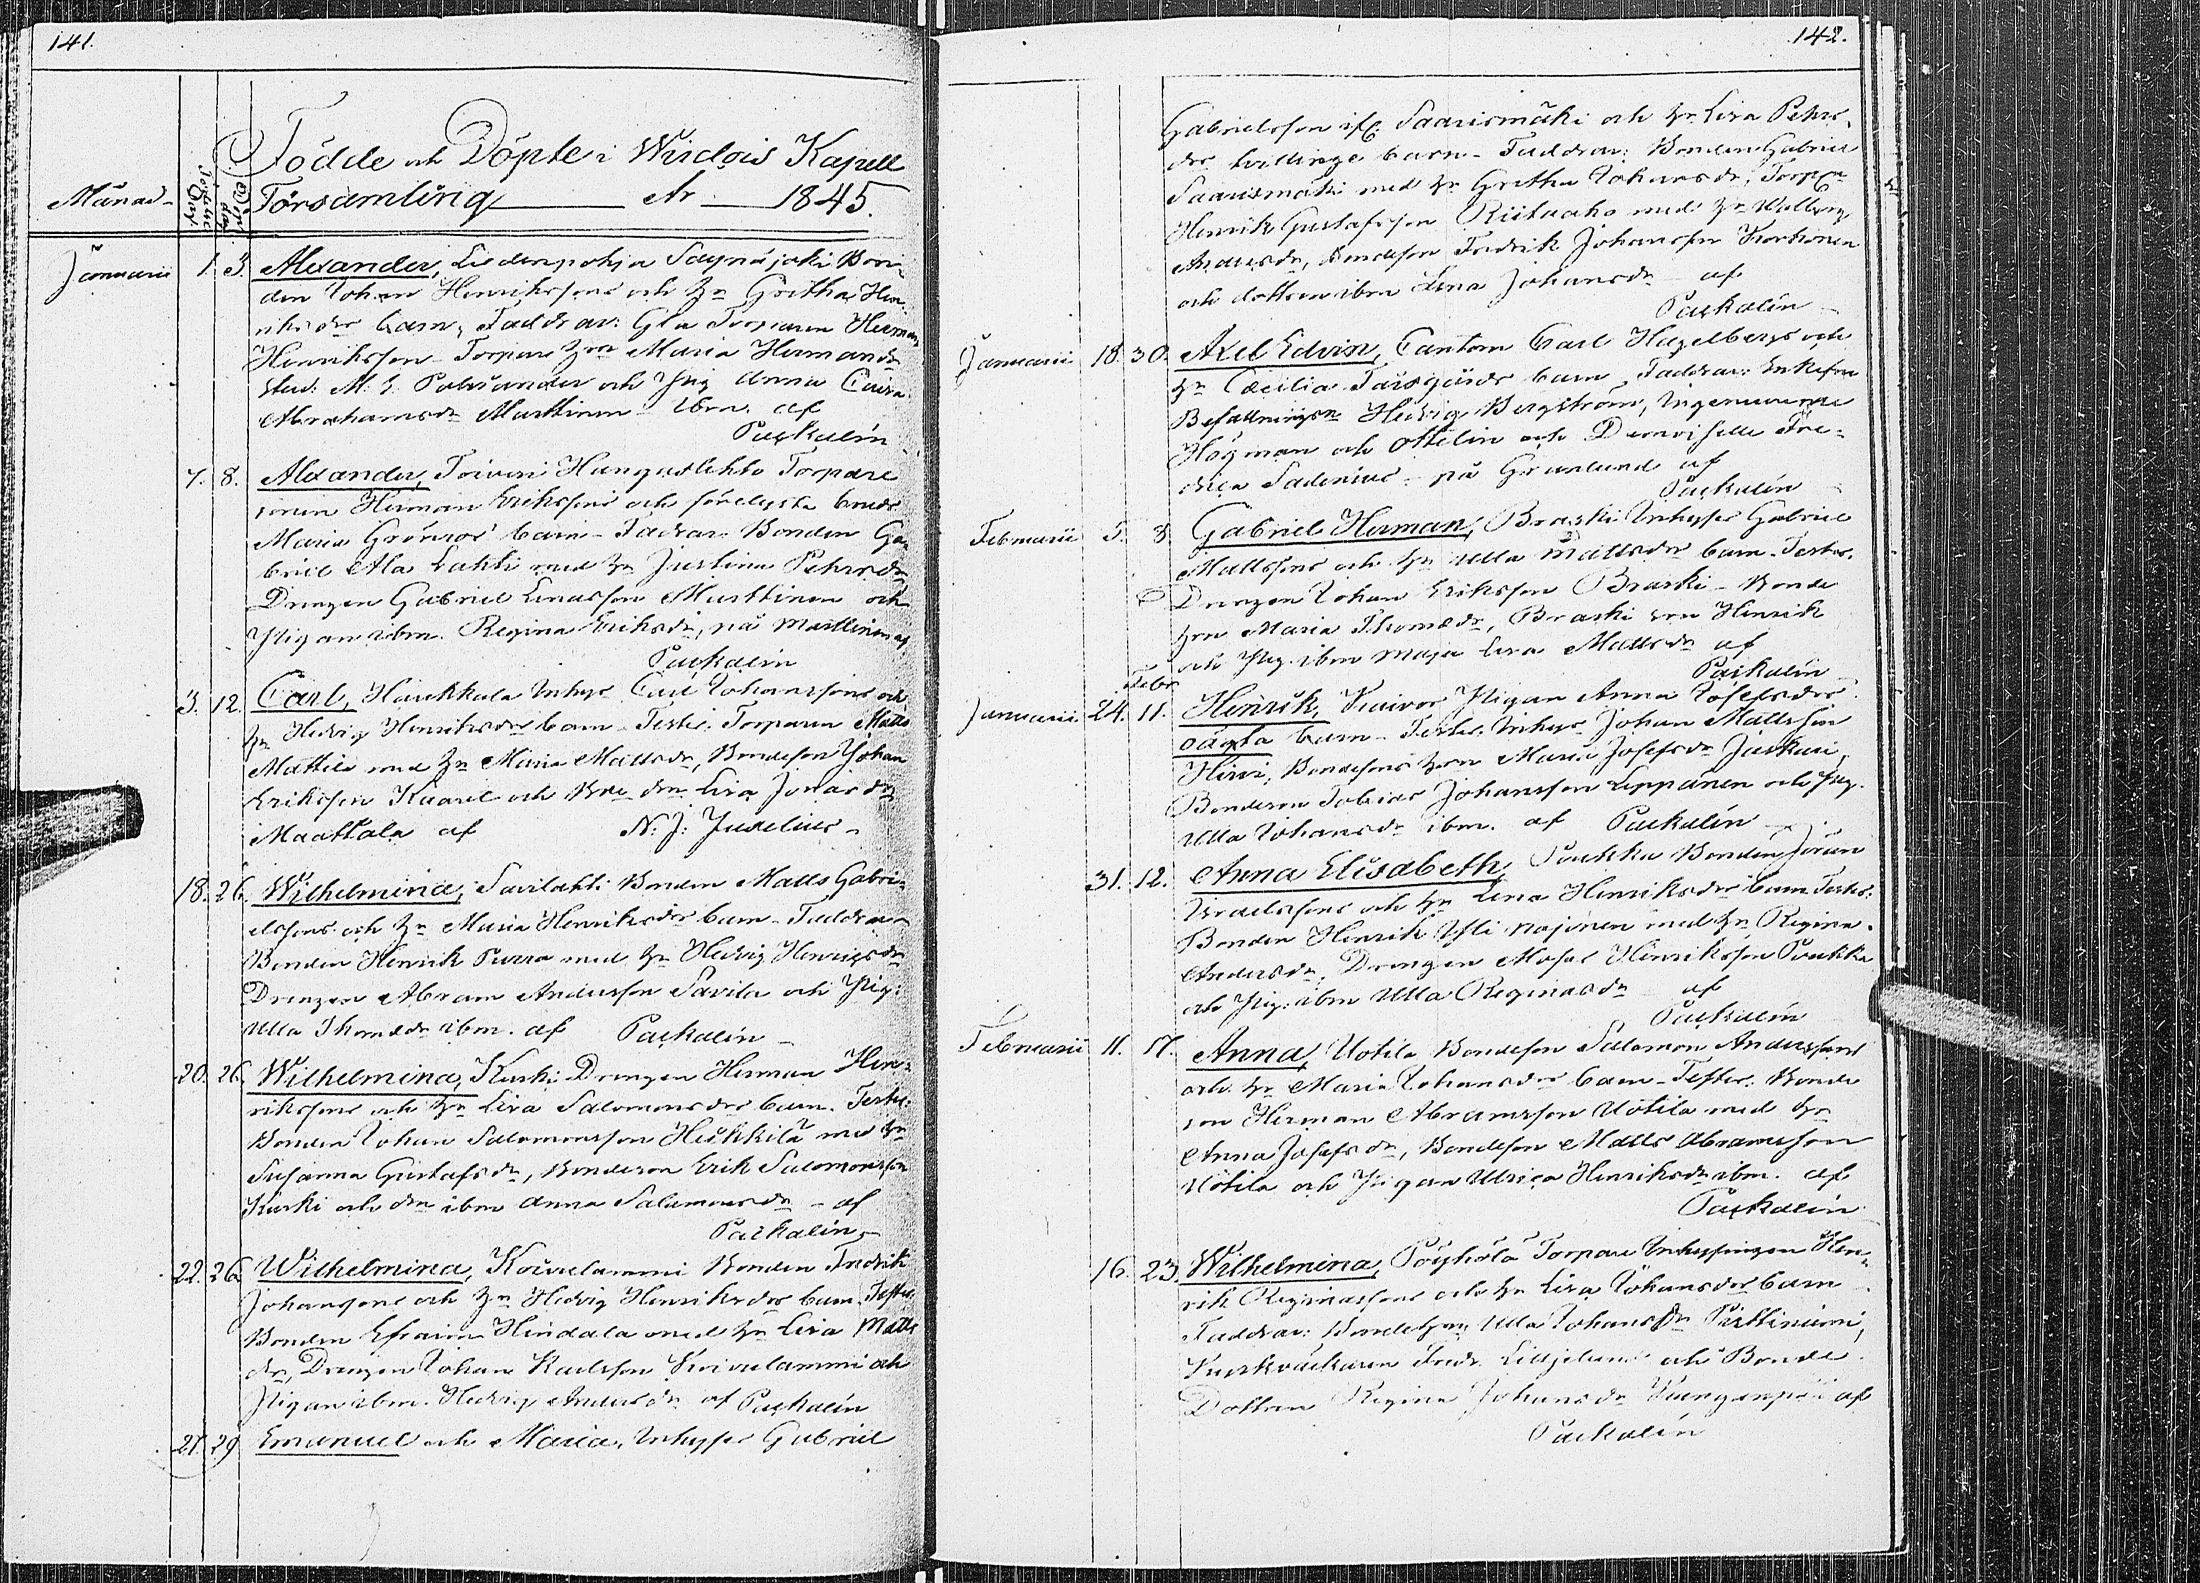 141.
Födde och Döpte i Wirdois Kapell
Månad Födelse Dag Döpelse dag Församling År 1845.
Januarii 1. 3. Alexander, Liedenpohja Saynäjoki Bon-
den Johan Henrikssons och h:n Gretha Hen-
riksdrs barn, Faddrar: Gla Torparen Herman
Henriksson Torpare h:n Maria Hermansdr
stud: M. E. Polviander och Pig Anna Caisa
Abrahamsdr Marttinen ibm. af
Paskalin
7. 8. Alexander, Toiveri Hangaslehto Torpare
sonen Herman Erikssons och förelysta brud
Maria Grönroos barn Faddrar Bonden Ga-
briel Ala Lahti med h:n Justina Pehrsdr
Drengen Gabriel Enasson Marttinen och
Pigan ibm. Regina Eriksdr, på Marttinen af
Paskalin
3. 12. Carl, Haukkala Inhys Carl Johanssons och
h:n Hedvig Henriksdrs barn Testes: Torparen Matts
Mattila med h:n Maria Mattsdr, Bondeson Johan
Eriksson Kaarel och Bde drn Lisa Jonasdr
Maattala af N: J: Juselius
18. 26. Wilhelmina, Savilahti Bonden Matts Gabri-
elssons och h:n Maria Henriksdrs barn Faddrar
Bonden Henrik Purra med h:n Hedvig Henriksdr
Drengen Abram Andersson Savila och Pig:
Ulla Thomædr ibm. af Paskalin
20. 26. Wilhelmina, Kurki Drengen Herman Hen-
rikssons och h:n Lisa Salomonsdrs barn. Testes:
Bonden Johan Salomonsson Heikkilä med h:n
Susanna Gustafsdr, Bondeson Erik Salomonsson
Kurki och drn ibm Anna Salomonsdr af
Paskalin
22. 26. Wilhelmina, Koivulammi Bonden Fredrik
Johanssons och h:n Hedvig Henriksdrs barn. Testes
Bonden Efraim Hindala med h:n Lisa Matts
dr, Drengen Johan Karlsson Koivulammi och
Pigan ibm. Hedvig Andersdr af Paskalin
21. 29. Emanuel och Maria, Inhyses Gabriel
142.
Gabrielsson ifr. Saarismäki och h:n Lisa Pehrs-
drs tvillinge barn Faddrar: Bonden Gabriel
Saarismäki med h:n Gretha Johansdr, Torpen
Henrik Gustafsson Riitaaho med h:n Walborg
Andersdr, Bondeson Fredrik Johansson Kortionen
och dottren ibm Lena Johansdr af
Paskalin
Januarii 18. 30. Axel Edvin, Cantorn Carl Hagelbergs och
h:n Cæcilia Färsgårds barn, Faddrar: Enkefru
Befallningsn Hedvig Bergström, Ingenieurerne
Högman och Ottelin och Demoiselle Fre-
drica Sadenius på Granlund af
Paskalin
Februarii 5. 3. Gabriel Herman, Braski Inhyses Gabriel
Mattssons och h:n Ulla Mattsdrs barn. Testes.
Drengen Johan Eriksson Braski Bonde
h:n Maria Thomædr, Braski son Henrik
och Pig. ibm Maja Lisa Mattsdr af
Paskalin
Febr
Januarii 24. 11. Henrik, Koivos Pigan Anna Josefsdrs
oägta barn Testes. Inhys Johan Mattsson
Hirvi, Bondesons h:n Maria Josefsdr Jaskari,
Bondeson Tobias Johansson Leppänen och Pig.
Ulla Johansdr ibm. af Paskalin
31. 12. Anna Elisabeth, Poukka Bonden Jöran
Israelssons och h:n Lena Henriksdrs barn Testes.
Bonden Henrik Yli najonen med h:n Regina
Andersdr, Drengen Moses Henriksson Poukka
och Pig. ibm Ulla Reginasdr af
Paskalin
Februarii 11. 17. Anna, Uotila Bondeson Salomon Anderssons
och h:n Maria Johansdrs barn Testes. Bonde
son Herman Abramsson Uotila med h:n
Anna Josefsdr, Bondeson Matts Abramsson
Uotila och Pigan Ulrica Henriksdr ibm. af
Paskalin
16. 23. Wilhelmina, Pöyhölä Torpare Inhysingen Hen-
rik Reginassons och h:n Lisa Johansdrs barn
Faddrar: Bondeh:n Ulla Johansdr Pirttiniemi,
Kuerkväckaren Fredr. Liljelund och Bonde
Dottren Regina Johansdr Kuengenpää af
Paskalin